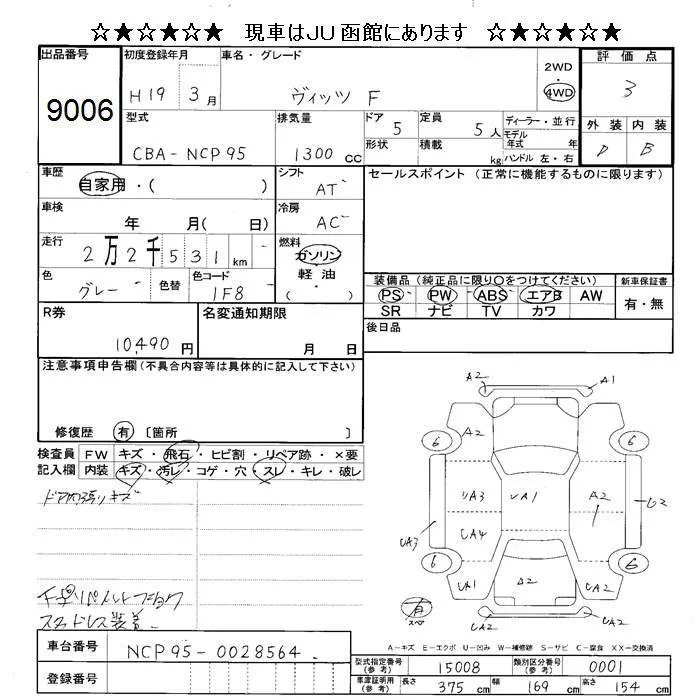 ☆★☆★☆★ 現車はJU函館にあります ☆★☆★☆★
出品番号 初度登録年月 車名・グレード 2WD・4WD 評価点
9006 H19 3月 ヴィッツ F 3
型式 排気量 ドア 定員 ディーラー・並行 外装 内装
CBA-NCP95 1300cc 5 5人 モデル年式 年 D B
形状 積載 kg ハンドル 左・右
車歴 シフト セールスポイント (正常に機能するものに限ります)
自家用・( ) AT
車検 冷房
年 月( 日) AC
走行 燃料
2万2千531km ガソリン
色 色替 色コード 軽油
グレー 1F8 ( )
装備品(純正品に限り○をつけてください) 新車保証書
PS PW ABS エアB AW 有・無
SR ナビ TV カワ
R券 名変通知期限 後日品
10,490円 月 日
注意事項申告欄(不具合内容等は具体的に記入して下さい)
修復歴 有 〔箇所 〕
検査員 FW キズ・飛石・ヒビ割・リペア跡・×要
記入欄 内装 キズ・汚レ・コゲ・穴・スレ・キレ・破レ
ドア内張りキズ
スタッドレス装着
A2 A1
6 A2 6
UA3 UA1 A2 U2
UA3 UA4
6 UA1 A2 UA2 6
有 スペ UA2 UA2
A-キズ E-エクボ U-凹み W-補修跡 S-サビ C-腐食 XX-交換済
車台番号 NCP95-0028564
登録番号
型式指定番号(参考) 15008 類別区分番号(参考) 0001
車庫証明用(参考) 長さ 375cm 幅 169cm 高さ 154cm